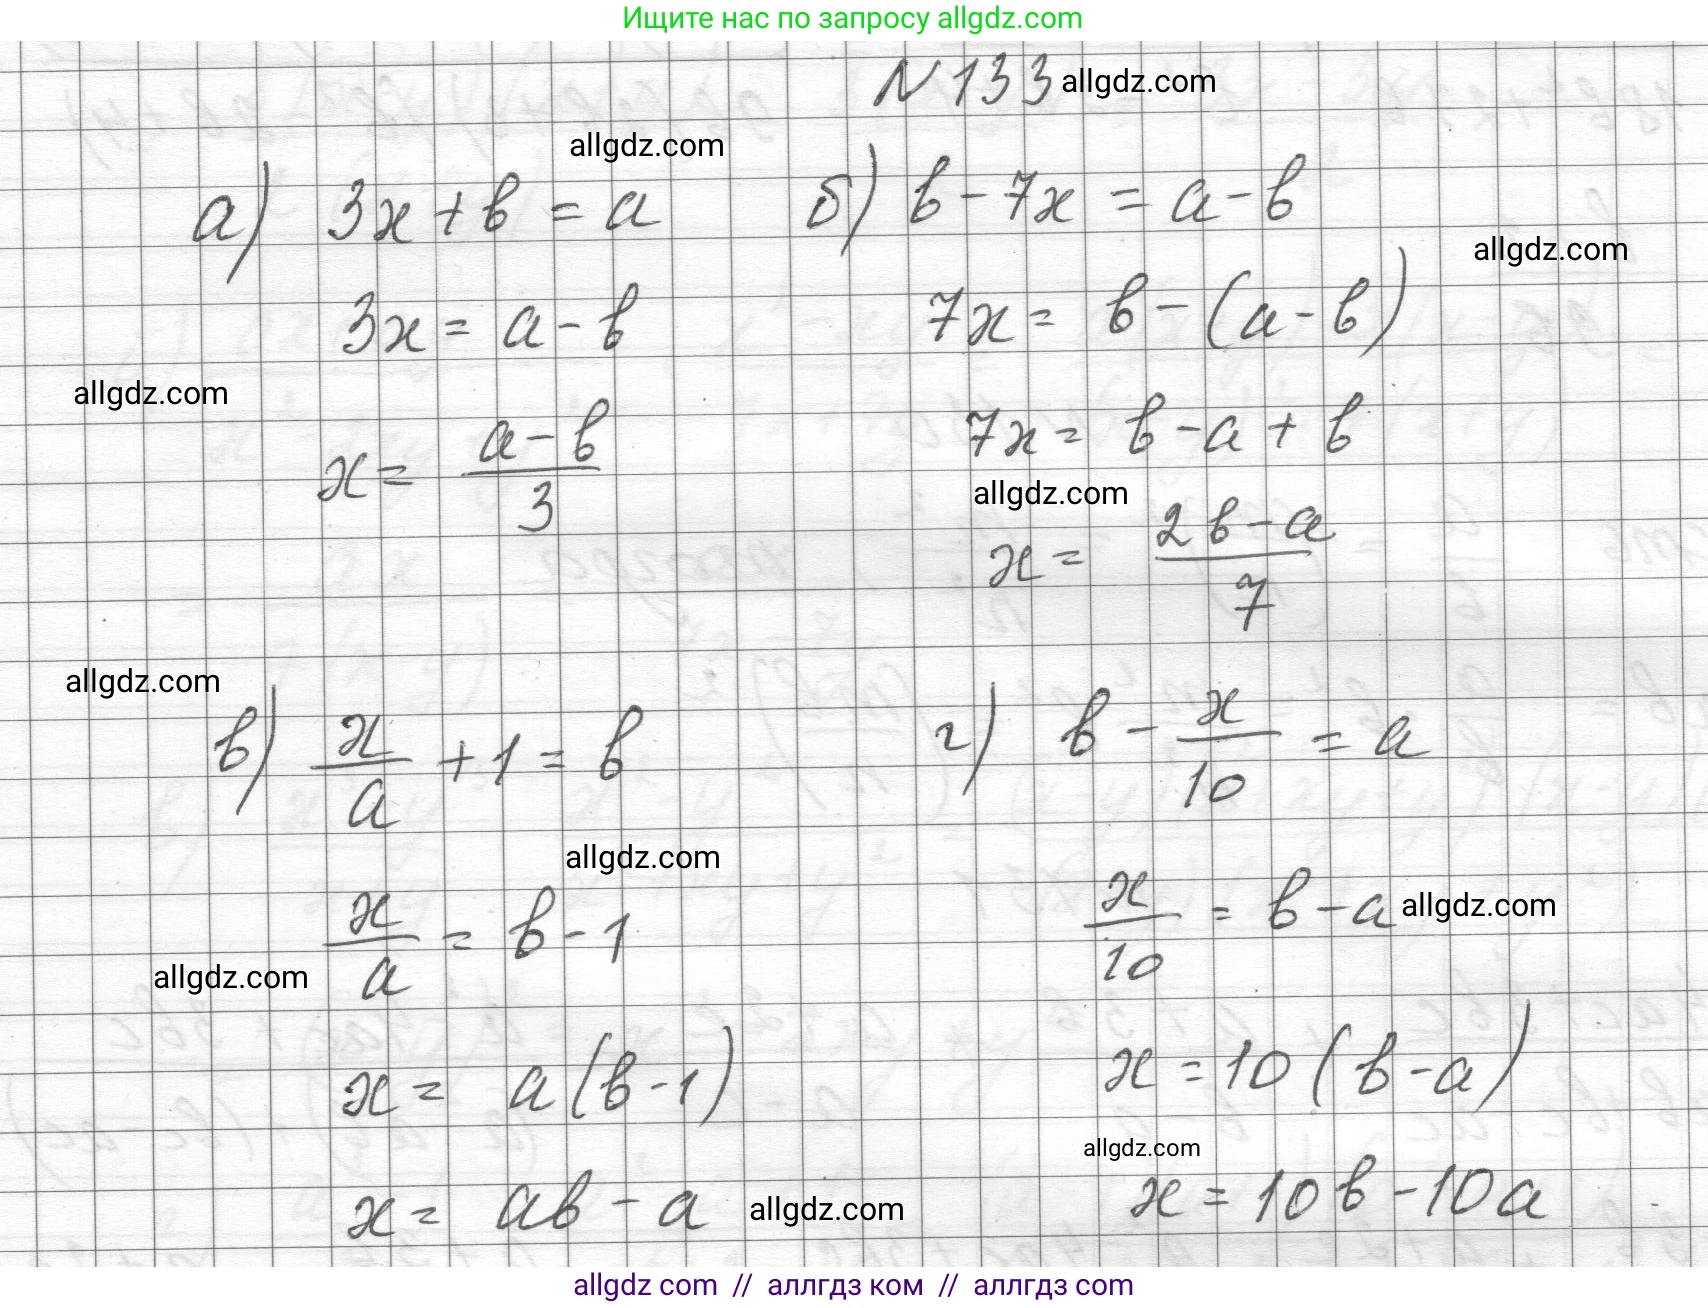 Ищите нас по запросу allgdz.com
N 133 allgdz.com
allgdz.com
а) 3x + b = a
3x = a - b
allgdz.com
x = \frac{a - b}{3}
б) b - 7x = a - b
allgdz.com
7x = b - (a - b)
7x = b - a + b
allgdz.com
x = \frac{2b - a}{7}
allgdz.com
в) \frac{x}{a} + 1 = b
allgdz.com
\frac{x}{a} = b - 1
allgdz.com
x = a(b - 1)
x = ab - a allgdz.com
г) b - \frac{x}{10} = a
\frac{x}{10} = b - a allgdz.com
x = 10(b - a)
allgdz.com
x = 10b - 10a
allgdz com // аллгдз ком // аллгdз com